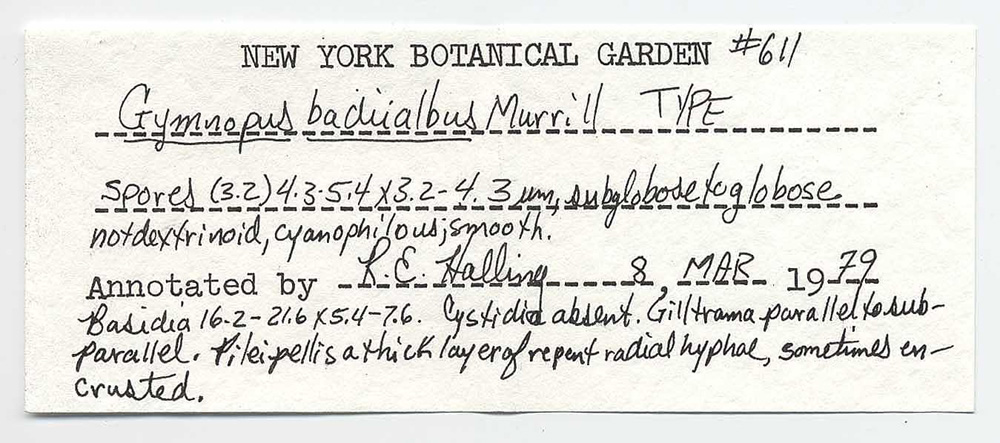 NEW YORK BOTANICAL GARDEN #611
Gymnopus badiialbus Murrill TYPE
Spores (3.2) 4.3-5.4 x 3.2-4.3 um, subglobose to globose
not dextrinoid, cyanophilous; smooth.
Annotated by R.E. Halling 8, MAR 1979
Basidia 16.2-21.6 x 5.4-7.6. Cystidia absent. Gill trama parallel to sub-
parallel. Pileipellis a thick layer of repent radial hyphae, sometimes en-
crusted.